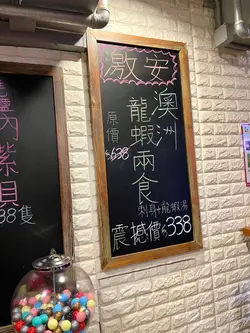 激安
澳洲
龍蝦兩食
原價
$638
刺身+龍蝦湯
震撼價$338
內紫貝
38隻